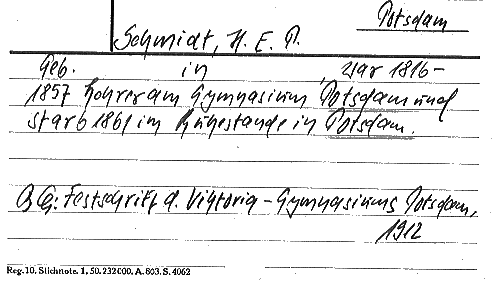 Potsdam
Schmidt, H. E. P.
Geb. in , war 1816-
1857 Lehrer am Gymnasium Potsdam und
starb 1861 im Ruhestande in Potsdam.
Qu: Festschrift d. Viktoria-Gymnasiums Potsdam,
1912
Reg.10. Stichnote. 1, 50. 232000. A. 803. S. 4062